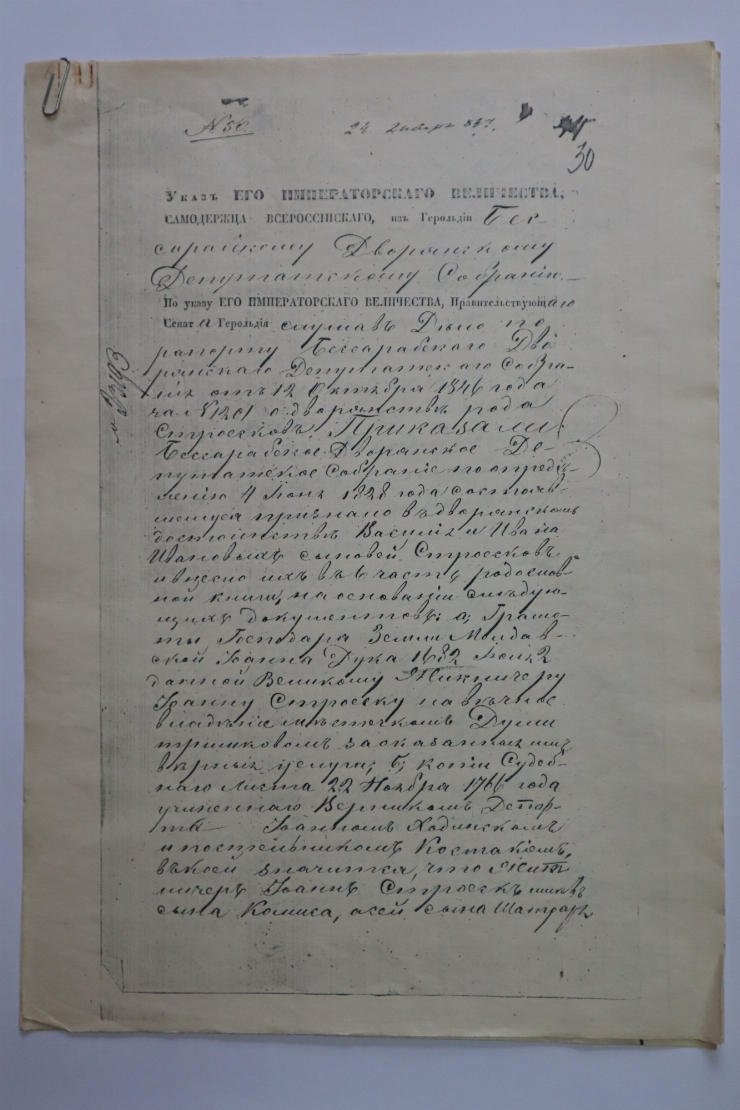 № 56.
24 Января 847.
30
Указъ ЕГО ИМПЕРАТОРСКАГО ВЕЛИЧЕСТВА,
САМОДЕРЖЦА ВСЕРОССІЙСКАГО, изъ Герольдіи Бес-
сарабскому Дворянскому
Депутатскому Собранію.
По указу ЕГО ИМПЕРАТОРСКАГО ВЕЛИЧЕСТВА, Правительствующаго
Сената Герольдія слушавъ Дѣло по
рапорту Бессарабскаго Дво
рянскаго Депутатскаго Собра-
нія отъ 12 Октября 1846 года
за №1201 о дворянствѣ рода
Строесковъ, Приказали:
Бессарабское Дворянское Де-
путатское Собраніе по опредѣ-
ленію 4 1828 года состояв-
шемуся признало въ дворянскомъ
достоинствѣ Василія и Ивана
Ивановыхъ сыновей Строесковъ
и внесло ихъ въ 6 часть родослов-
ной книги, на основаніи слѣдую-
щихъ документовъ: а, Грамо-
ты Господаря Земли Молдав-
ской Іоанна Дука 1682 2
данной Великому Житничеру
Іоанну Строеску на вѣчное
владѣніе мѣстечкомъ Думи
за оказанныя имъ
вѣрныя услуги; б, копіи Судеб-
наго Листа 22 Ноября 1766 года
учиненнаго Ворникомъ
Іоанномъ
и постельникомъ Костакіемъ,
въ коей значится, что Жит
ничеръ Іоаннъ Строескъ
сына Комиса, а сей сына Шатрар